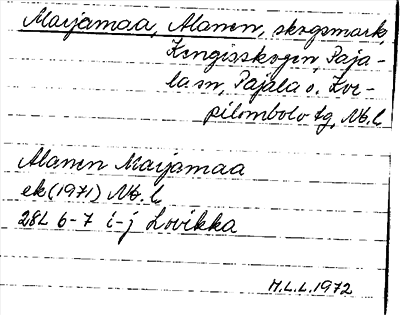 Marjamaa, Alanen, skogsmark,
Kengisskogen, Paja-
la sn, Pajala o. Kor-
pilombolo tg, Nb.l.
Alanen Marjamaa
ek (1971) Nb.l.
28L 6-7 i-j Lovikka
H.L.L. 1972